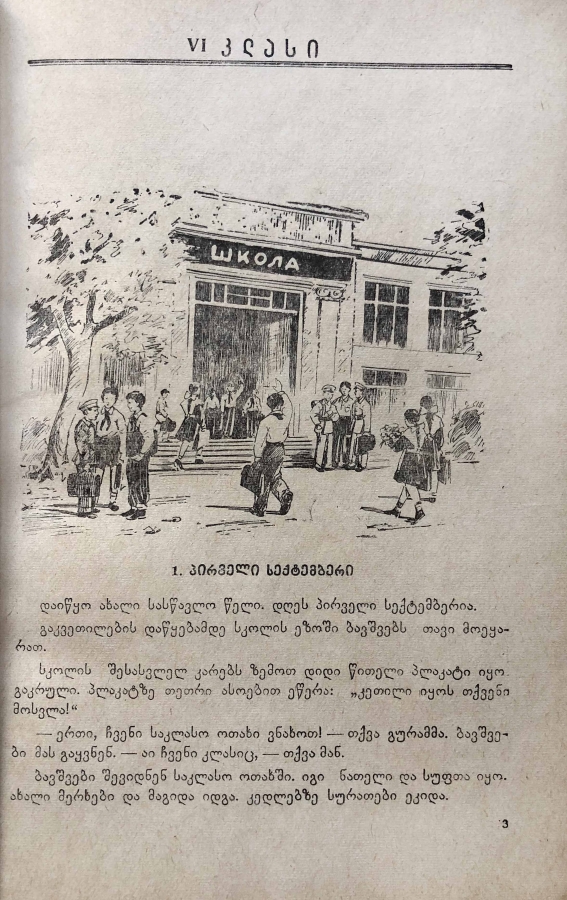 VI კლასი
ШКОЛА
1. პირველი სექტემბერი
დაიწყო ახალი სასწავლო წელი. დღეს პირველი სექტემბერია.
გაკვეთილების დაწყებამდე სკოლის ეზოში ბავშვებს თავი მოეყა-
რათ.
სკოლის შესასვლელ კარებს ზემოთ დიდი წითელი პლაკატი იყო
გაკრული. პლაკატზე თეთრი ასოებით ეწერა: „კეთილი იყოს თქვენი
მოსვლა!“
— ერთი, ჩვენი საკლასო ოთახი ვნახოთ! — თქვა გურამმა. ბავშვე-
ბი მას გაყვნენ. — აი ჩვენი კლასიც, — თქვა მან.
ბავშვები შევიდნენ საკლასო ოთახში. იგი ნათელი და სუფთა იყო.
ახალი მერხები და მაგიდა იდგა. კედლებზე სურათები ეკიდა.
3